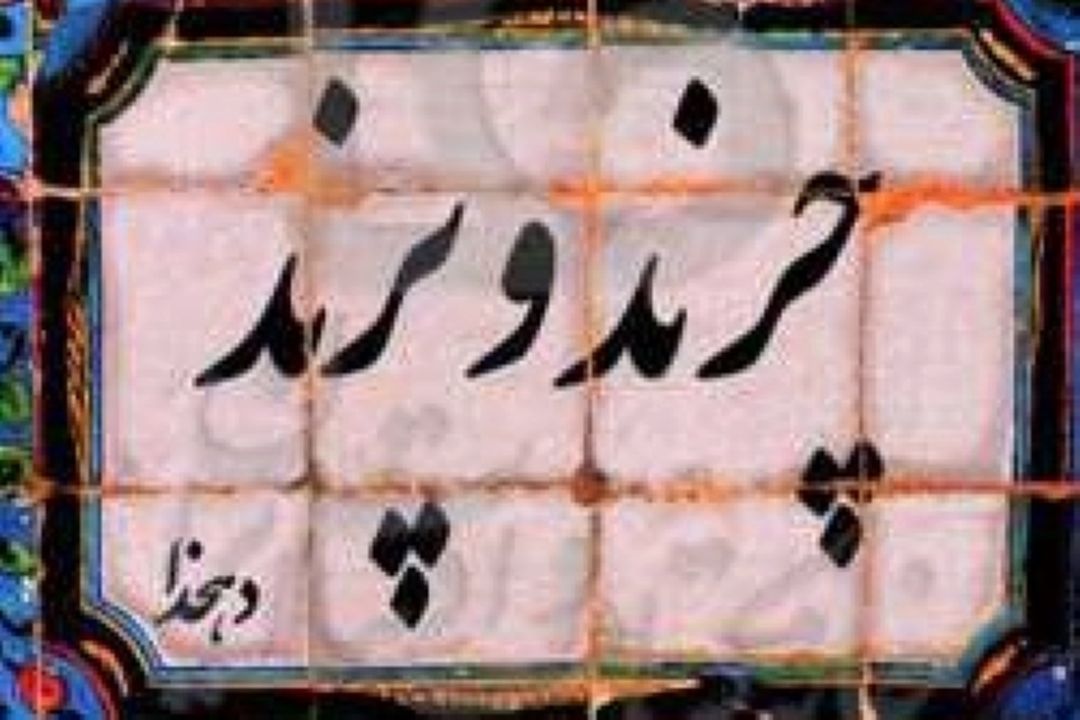 چرند و پرند
دهخدا